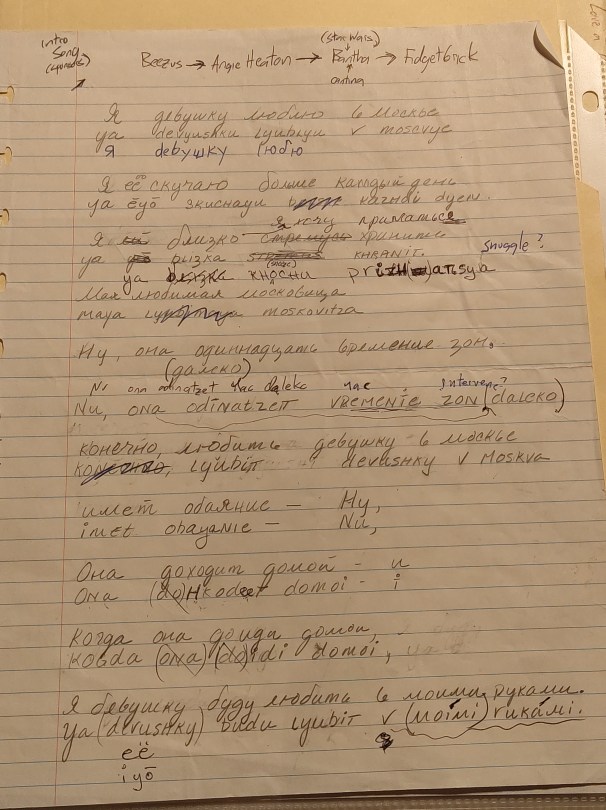 Intro
Song
(star wars)
Beezus → Angie Heaton → Bantha → Fidgetbrick
antina
Я девушку люблю в Москве
ya devyushku lyublyu v moscvye
Я девушку люблю
Я её скучаю больше каждый день
ya ëyō
Я хочу прижаться
Я близко хранить
ya KHRANIT. snuggle?
ya
Моя любимая московица
maya moskovitza
Ну, она одиннадцать времение зон.
(далеко)
Nu ona odinatzet час daleko час intervene?
Nu, ona odinatzett VREMENIE ZON (daleko)
конечно, любить девушку в Москве
lyubit devushky v Moskva
имет обаяние — Ну,
imet obayanie — Nu,
Она доходит домой - и
Ona (do)Hkodeet domoi - i
Когда она дойда домой,
kovda (ona) (do)idi domoi,
Я девушку буду любить в моими руками.
ya (devushky) budu lyubit v (moimi) rukámi.
её
iyō